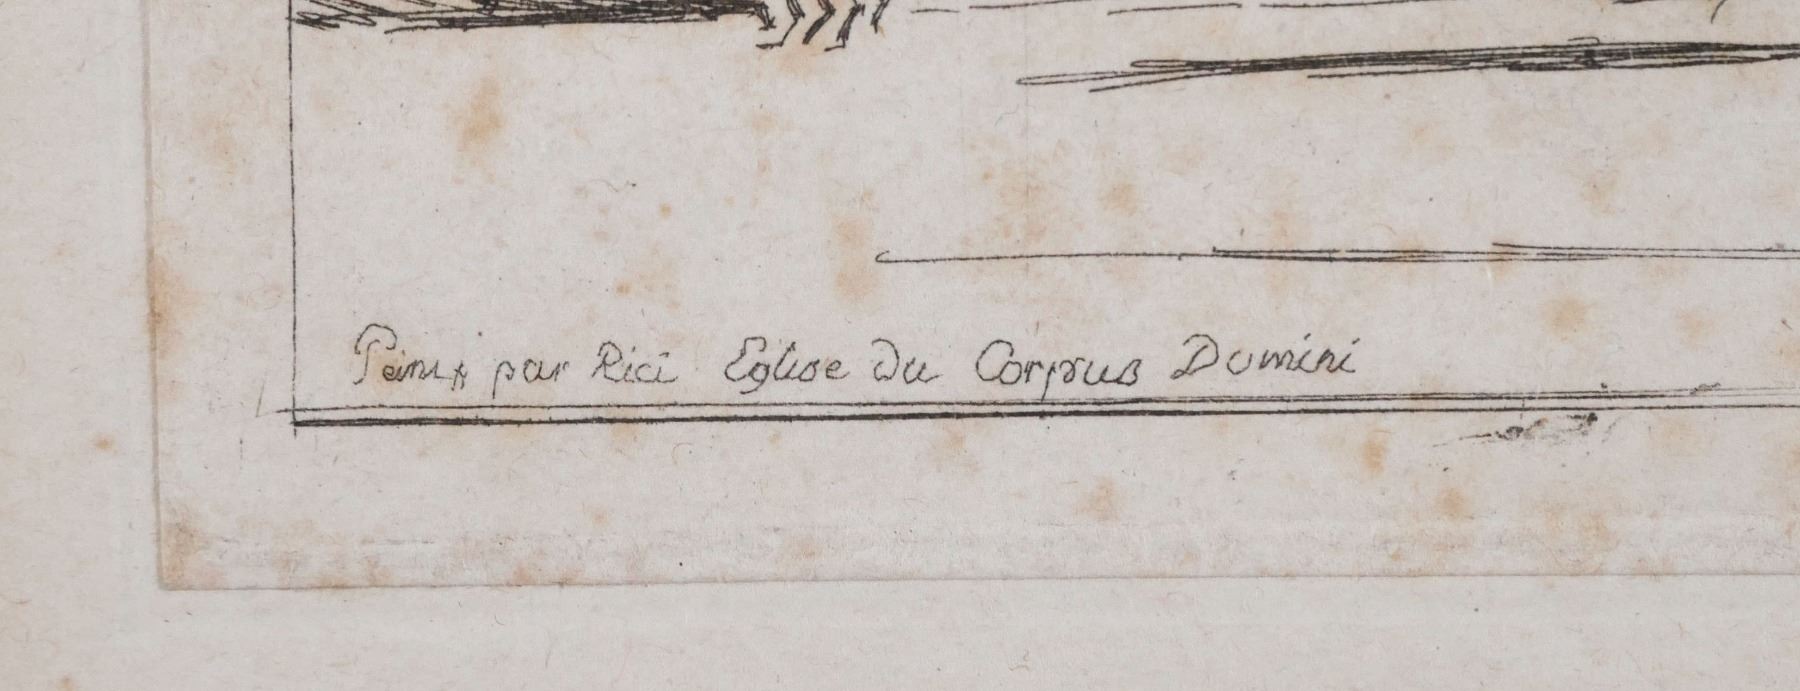 Peint par Rici Eglise Du Corpus Domini